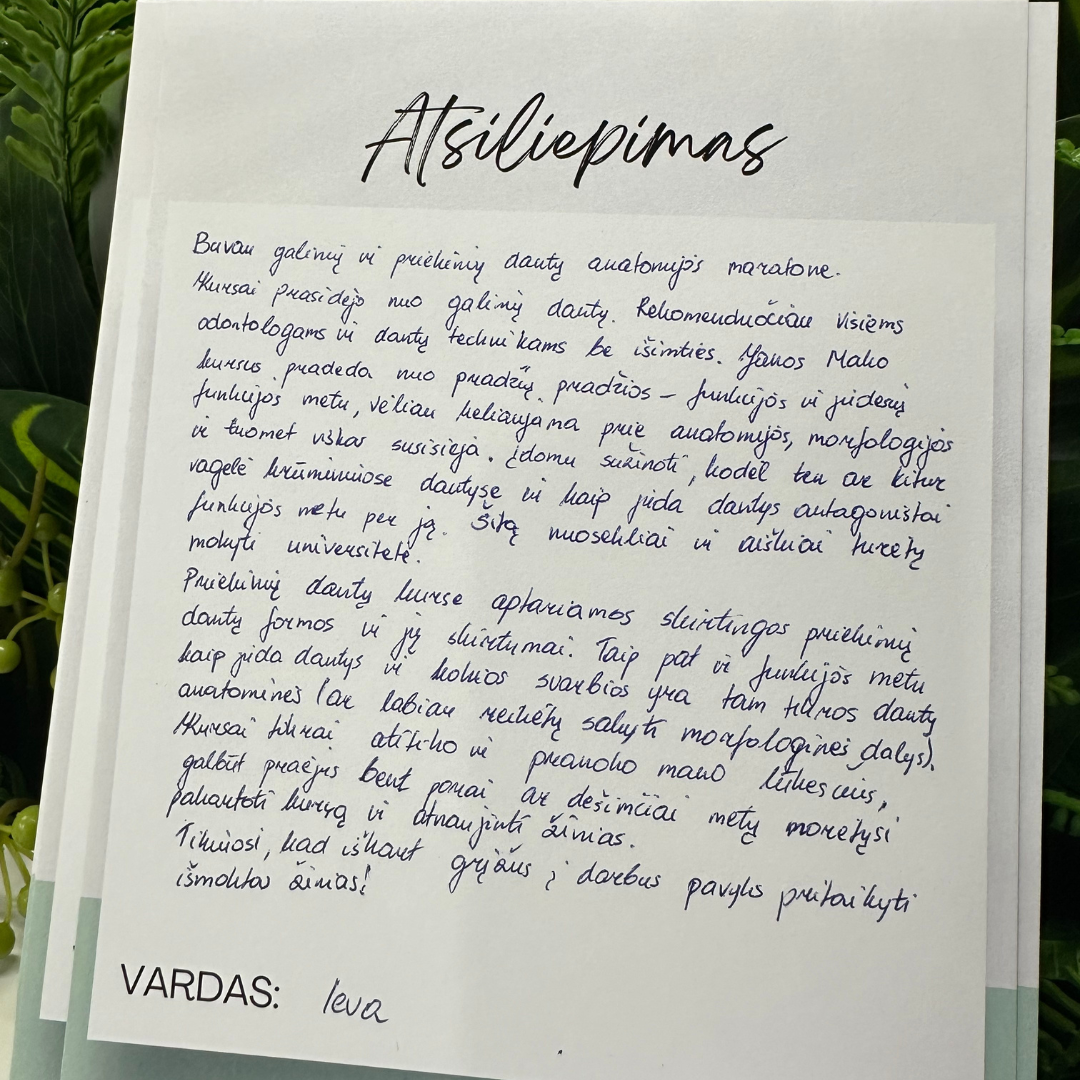 Atsiliepimas
Buvau galinių ir priekinių dantų anatomijos maratone.
Kursai prasidėjo nuo galinių dantų. Rekomenduočiau visiems
odontologams ir dantų technikams be išimties. Yanos Mako
kursus pradeda nuo pradžių pradžios – funkcijos ir judesių
funkcijos metu, vėliau keliaujama prie anatomijos, morfologijos
ir tuomet viskas susisieja. Įdomu sužinoti, kodėl ten ar kitur
vagelė krūminiuose dantyse ir kaip juda dantys antagonistai
funkcijos metu per ją. Šitą nuosekliai ir aiškiai turėtų
mokyti universitete.
Priekinių dantų kurse aptariamos skirtingos priekinių
dantų formos ir jų skirtumai. Taip pat ir funkcijos metu
kaip juda dantys ir kokios svarbios yra tam tikros dantų
anatominės (ar labiau reikėtų sakyti morfologinės dalys).
Kursai tikrai atitiko ir pranoko mano lūkesčius,
galbūt praėjus bent porai ar dešimčiai metų norėtųsi
pakartoti kursą ir atnaujinti žinias.
Tikiuosi, kad iškart grįžus į darbus pavyks pritaikyti
išmoktas žinias!
VARDAS: Ieva